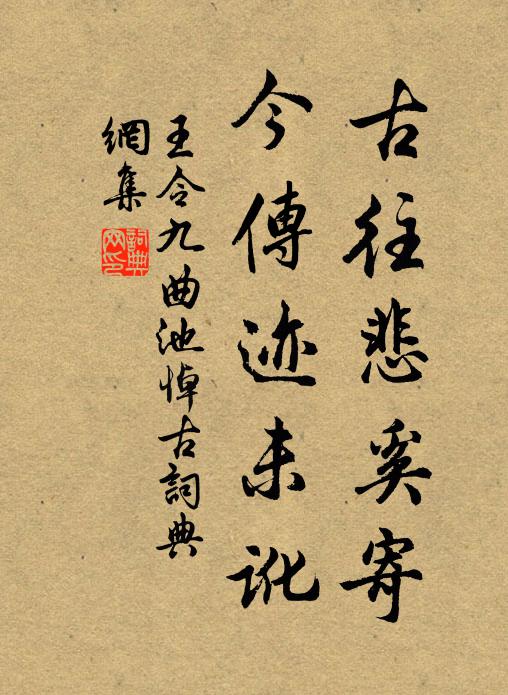 古往悲奚寄
今傳迹未訛
王令九曲池悼古詞典
網集
詞典
网印